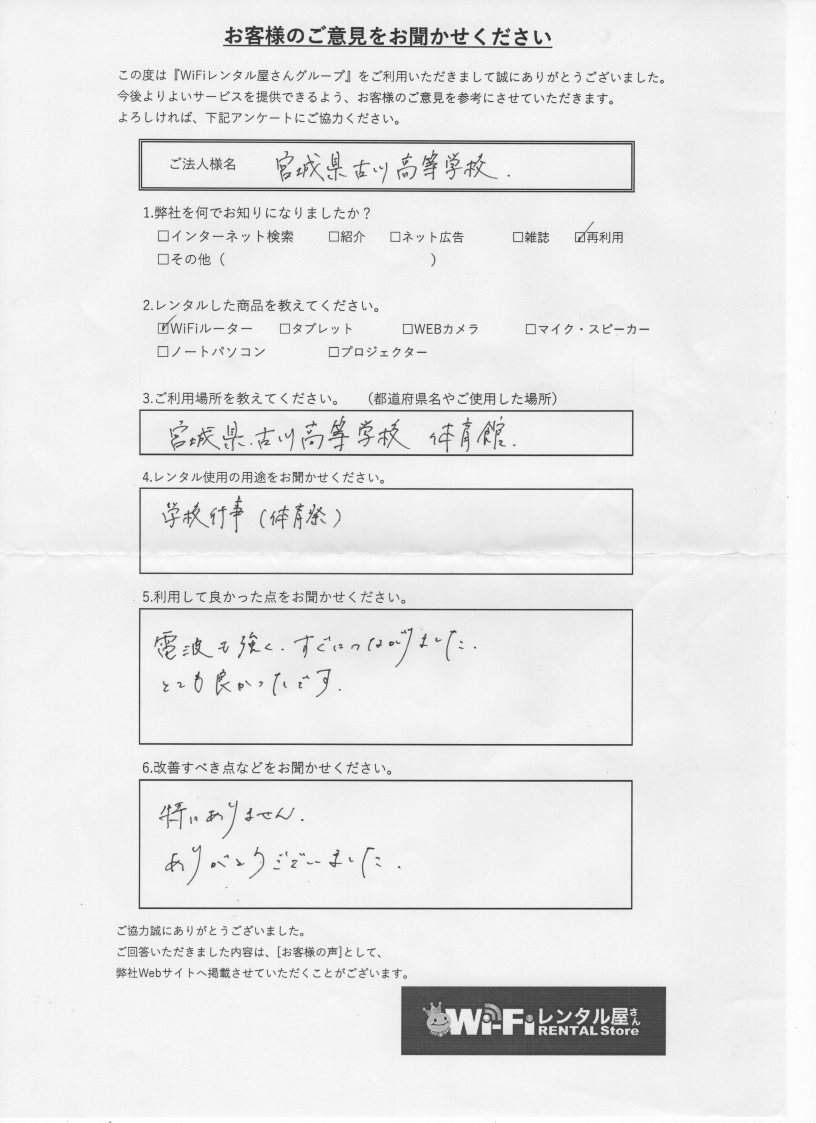 お客様のご意見をお聞かせください
この度は『WiFiレンタル屋さんグループ』をご利用いただきまして誠にありがとうございました。
今後よりよいサービスを提供できるよう、お客様のご意見を参考にさせていただきます。
よろしければ、下記アンケートにご協力ください。
ご法人様名 宮城県古川高等学校.
1.弊社を何でお知りになりましたか？
□インターネット検索 □紹介 □ネット広告 □雑誌 ☑再利用
□その他（ ）
2.レンタルした商品を教えてください。
☑WiFiルーター □タブレット □WEBカメラ □マイク・スピーカー
□ノートパソコン □プロジェクター
3.ご利用場所を教えてください。 （都道府県名やご使用した場所）
宮城県.古川高等学校 体育館.
4.レンタル使用の用途をお聞かせください。
学校行事（体育祭）
5.利用して良かった点をお聞かせください。
電波も強く、すぐにつながりました.
とても良かったです.
6.改善すべき点などをお聞かせください。
特にありません.
ありがとうございました.
ご協力誠にありがとうございました。
ご回答いただきました内容は、[お客様の声]として、
弊社Webサイトへ掲載させていただくことがございます。
Wi-Fiレンタル屋さん
RENTAL Store